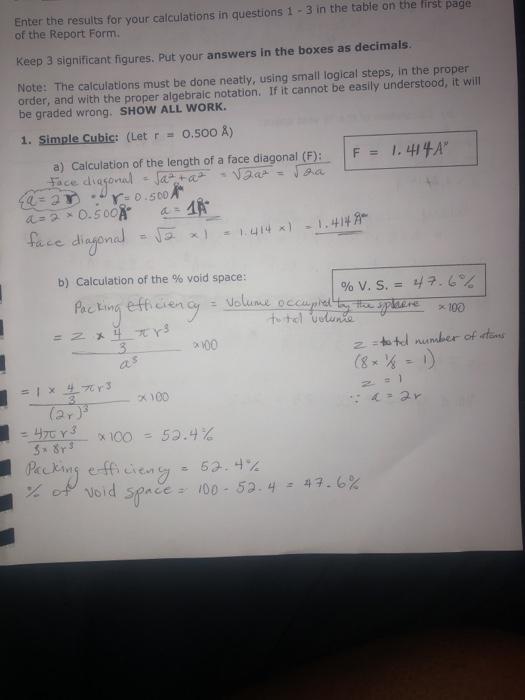 Enter the results for your calculations in questions 1 - 3 in the table on the first page
of the Report Form.
Keep 3 significant figures. Put your answers in the boxes as decimals.
Note: The calculations must be done neatly, using small logical steps, in the proper
order, and with the proper algebraic notation. If it cannot be easily understood, it will
be graded wrong. SHOW ALL WORK.
1. Simple Cubic: (Let r = 0.500 Å)
a) Calculation of the length of a face diagonal (F):
F = 1.414A°
face diagonal = √a²+a² = √2a² = √2a
a = 2r ∵ r = 0.500A°
a = 2 × 0.500A° a = 1A°
face diagonal = √2 × 1 = 1.414 × 1 = 1.414A°
b) Calculation of the % void space:
% V. S. = 47.6%
Packing efficiency = Volume occupied by the sphere × 100
total volume
= z × 4/3 πr³ × 100
a³
z = total number of atoms
(8 × 1/8 = 1)
z = 1
∵ a = 2r
= 1 × 4/3 πr³ × 100
(2r)³
= 4πr³ × 100 = 52.4%
3 × 8r³
Packing efficiency = 52.4%
% of void space = 100 - 52.4 = 47.6%